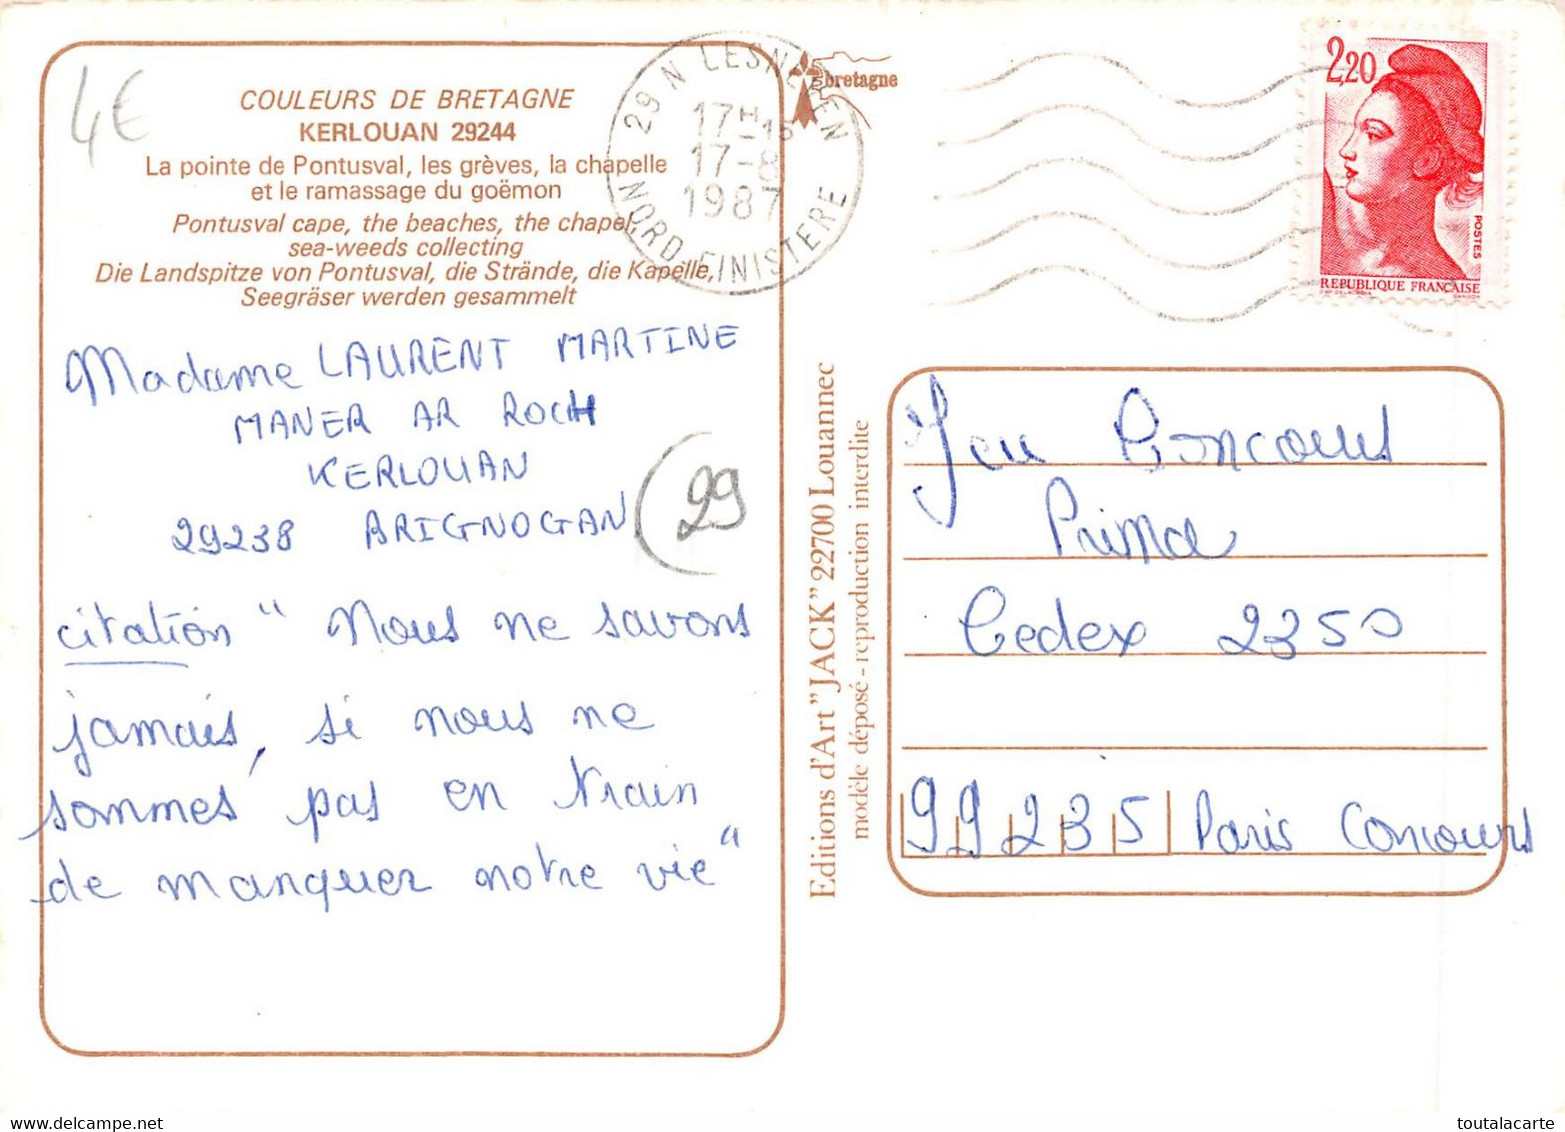 4€
COULEURS DE BRETAGNE
KERLOUAN 29244
La pointe de Pontusval, les grèves, la chapelle
et le ramassage du goëmon
Pontusval cape, the beaches, the chapel,
sea-weeds collecting
Die Landspitze von Pontusval, die Strände, die Kapelle,
Seegräser werden gesammelt
Madame LAURENT MARTINE
MANER AR ROCH
KERLOUAN
29238 BRIGNOGAN
29
citation " Nous ne savons
jamais, si nous ne
sommes pas en train
de manquer notre vie"
29 N LESNEVEN
17H
17-8
1987
NORD FINISTERE
bretagne
2,20
POSTES
REPUBLIQUE FRANÇAISE
Editions d'Art "JACK" 22700 Louannec
modèle déposé - reproduction interdite
Jeu Concours
Prima
Cedex 2350
99235 Paris Concours
toutalacarte